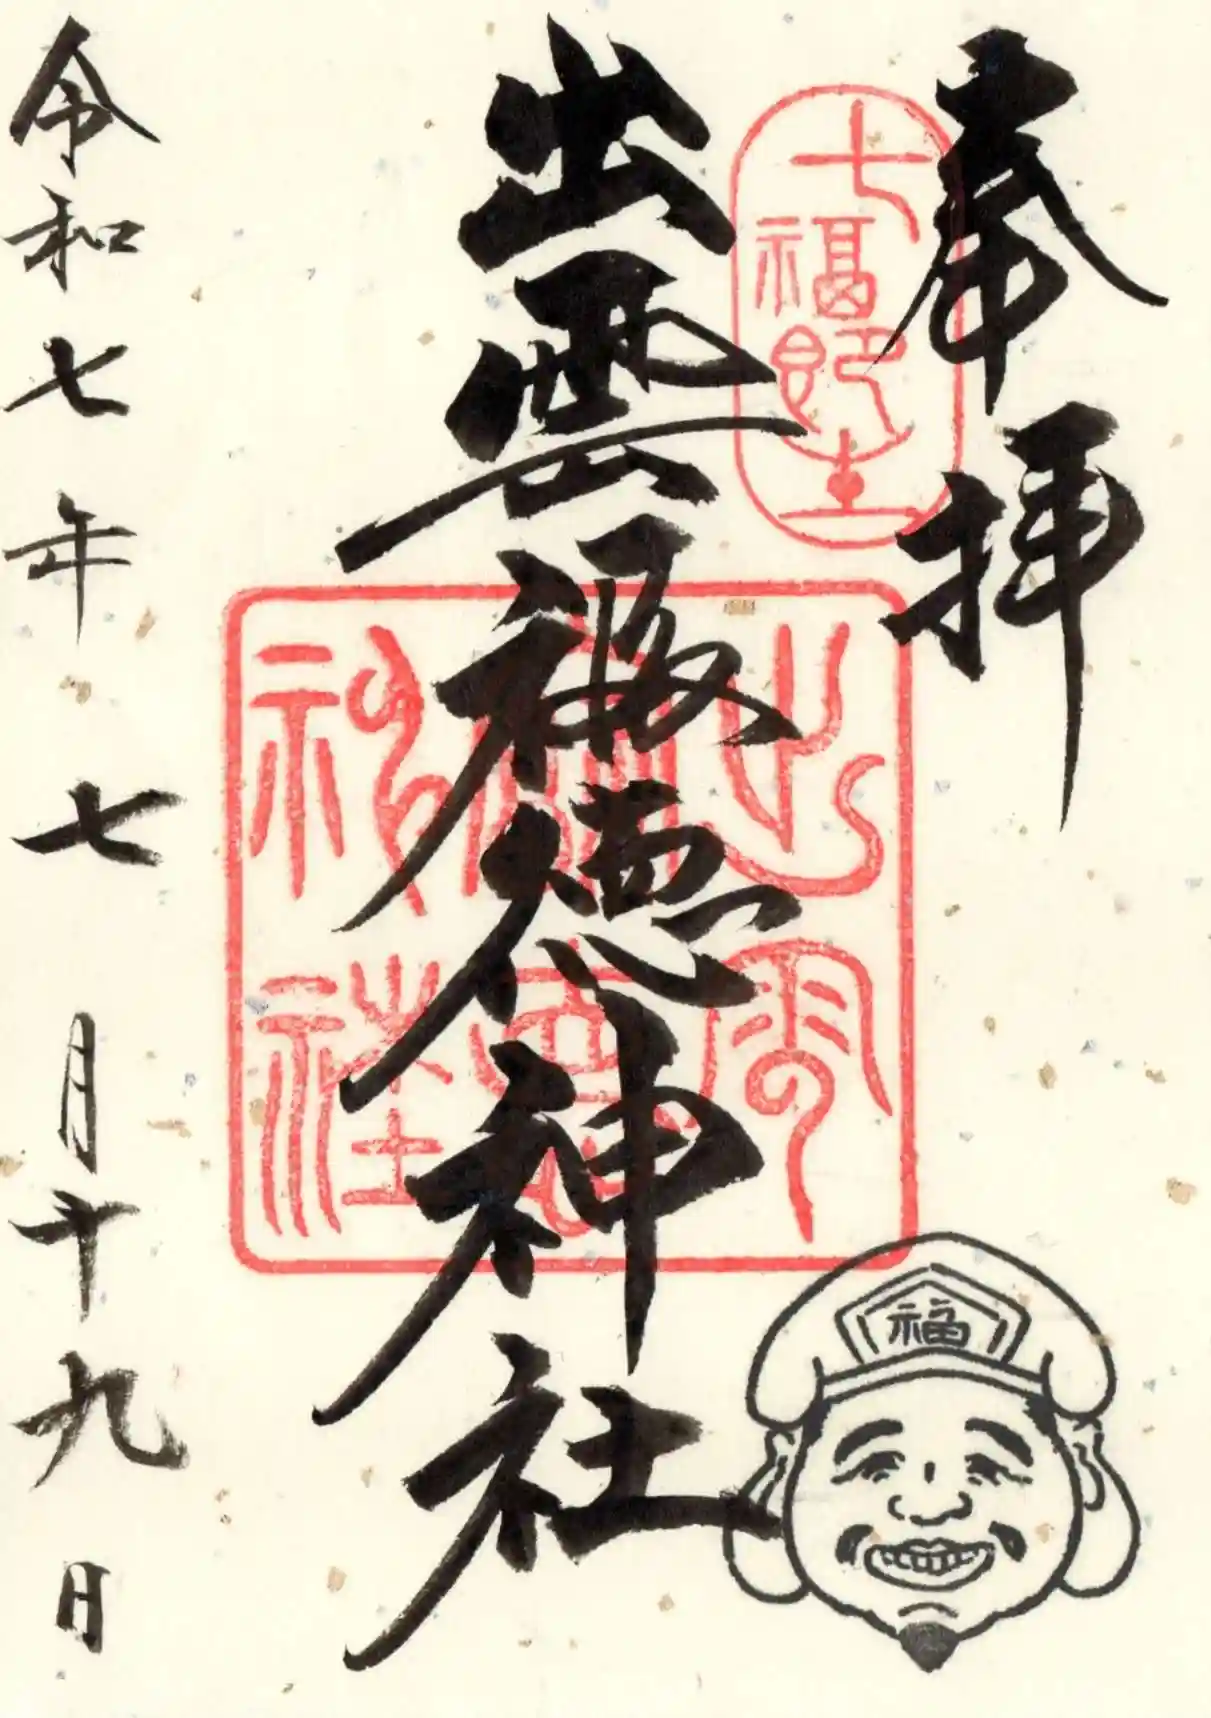 奉拝
七福即生
出雲福徳神社
出雲
福徳
神社
福
令和七年七月十九日